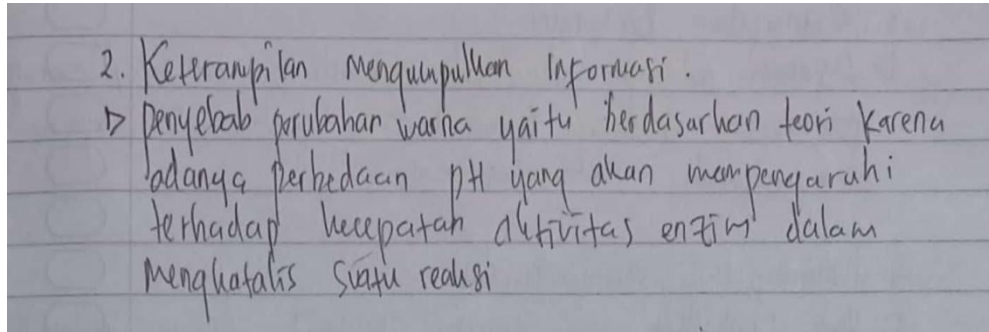 2. Keterampilan Mengumpulkan Informasi.
▷ Penyebab perubahan warna yaitu berdasarkan teori karena
adanya perbedaan pH yang akan mempengaruhi
terhadap kecepatan aktivitas enzim dalam
mengkatalis suatu reaksi